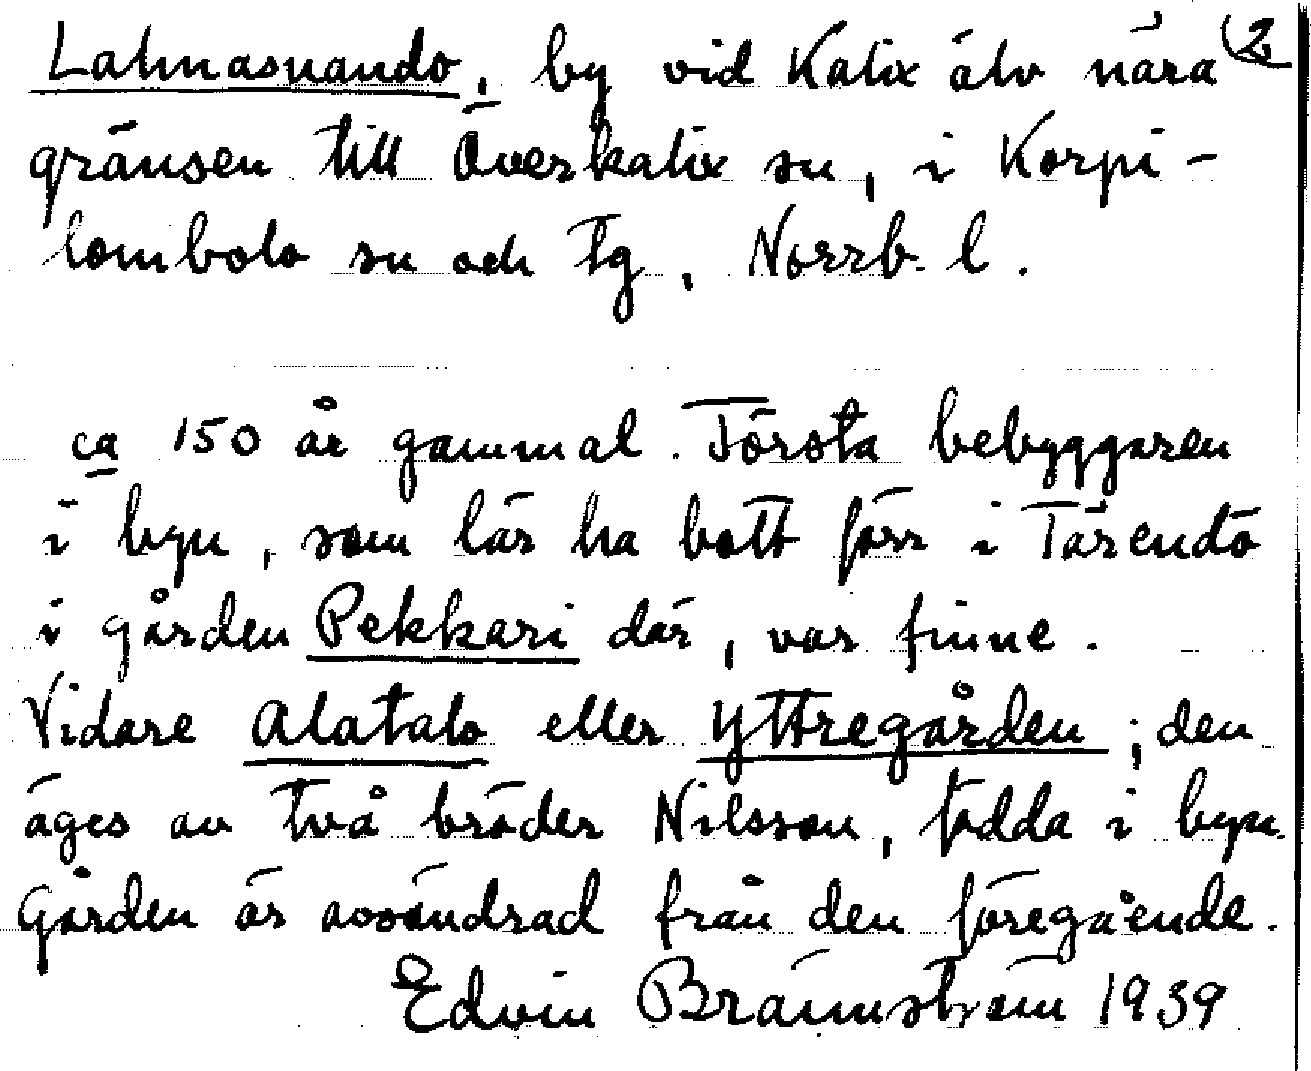 Lahnasuando, by vid Kalix älv nära (2
gränsen till Överkalix sn, i Korpi-
lombolo sn och tg, Norrb. l.
ca 150 år gammal. Första bebyggaren
i byn, som lär ha bott förr i Tärendö
i gården Pekkari där, var finne.
Vidare Alatalo eller Yttregården; den
äges av två bröder Nilsson, födda i byn.
Gården är avsöndrad från den föregående.
Edvin Brännström 1939